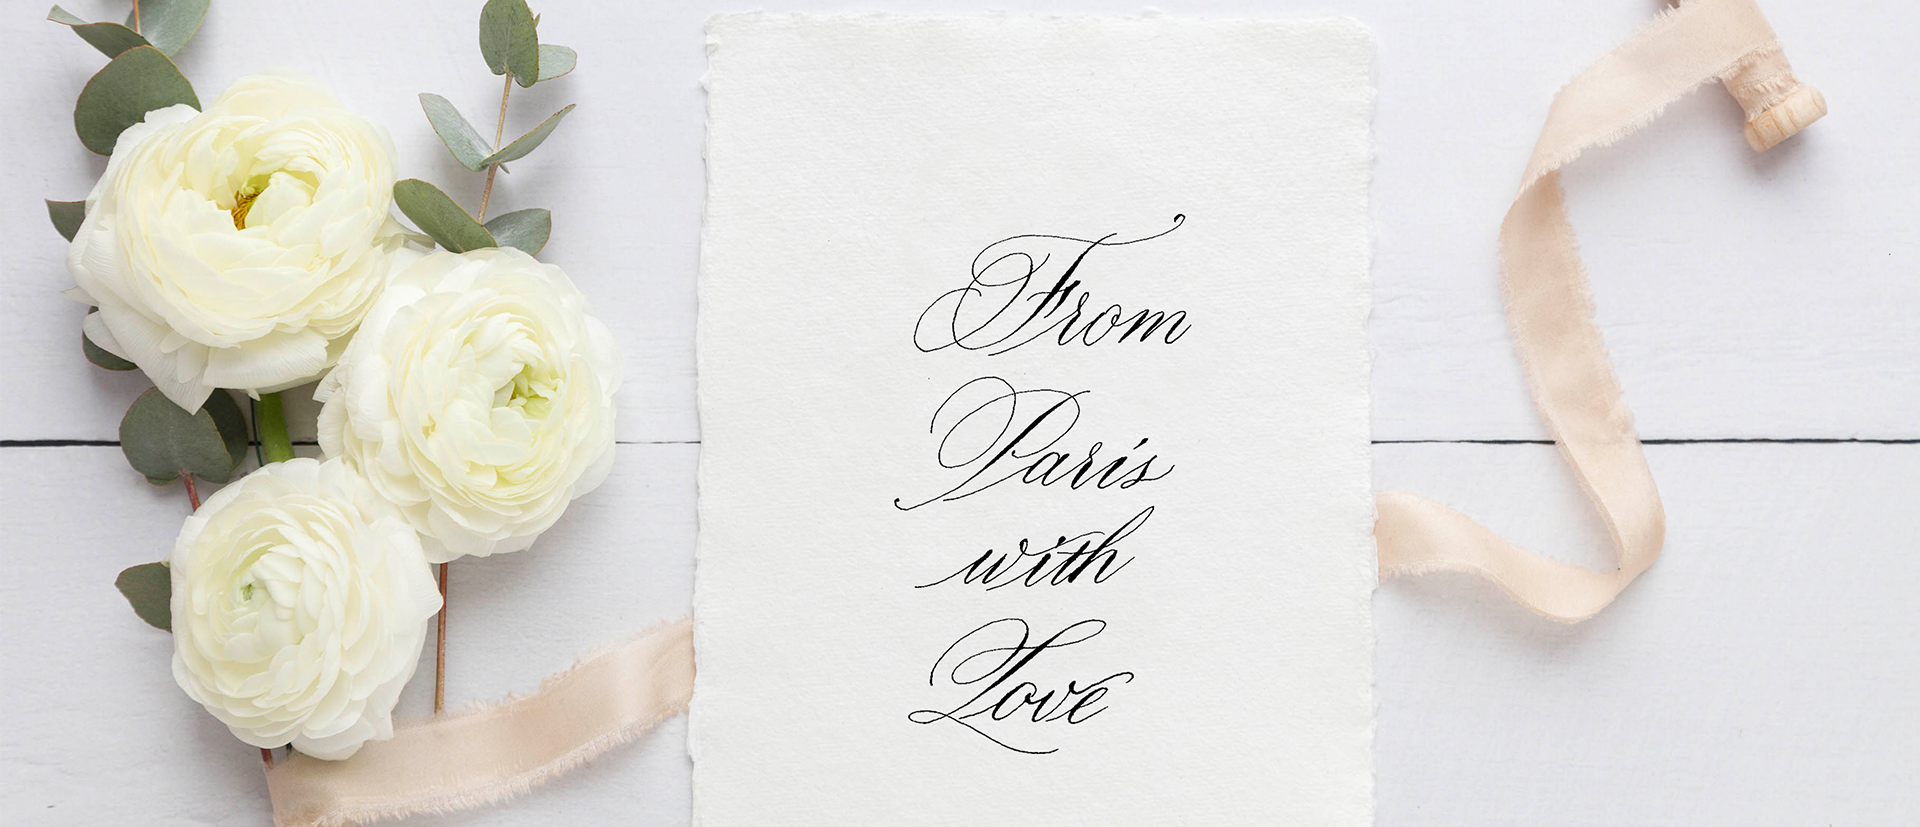 From
Paris
with
Love